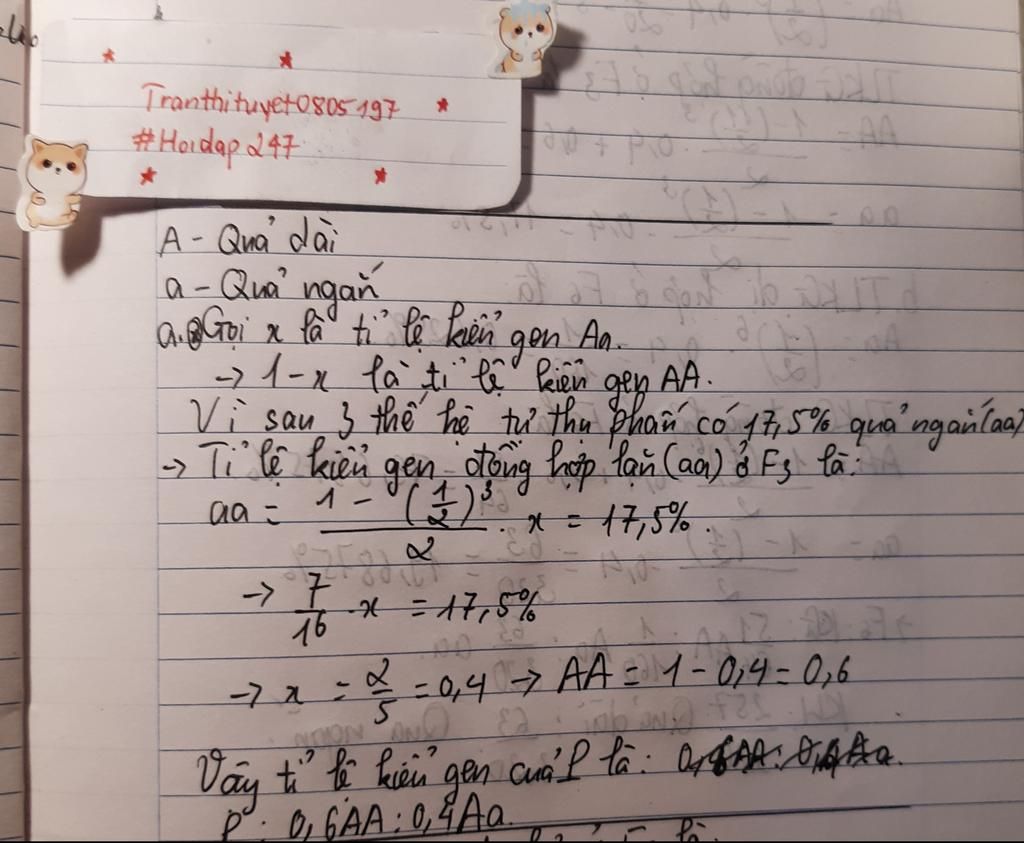 Tranthituyet0805197
#Hoidap247
A - Quả dài
a - Quả ngắn
a. Gọi x là tỉ lệ kiểu gen Aa.
→ 1-x là tỉ lệ kiểu gen AA.
Vì sau 3 thế hệ tự thụ phấn có 17,5% quả ngắn(aa)
→ Tỉ lệ kiểu gen đồng hợp lặn (aa) ở F3 là:
aa = (1 - (1/2)^3)/2 . x = 17,5%.
→ 7/16 . x = 17,5%
→ x = 2/5 = 0,4 → AA = 1 - 0,4 = 0,6
Vậy tỉ lệ kiểu gen của P là:
P: 0,6AA : 0,4Aa.